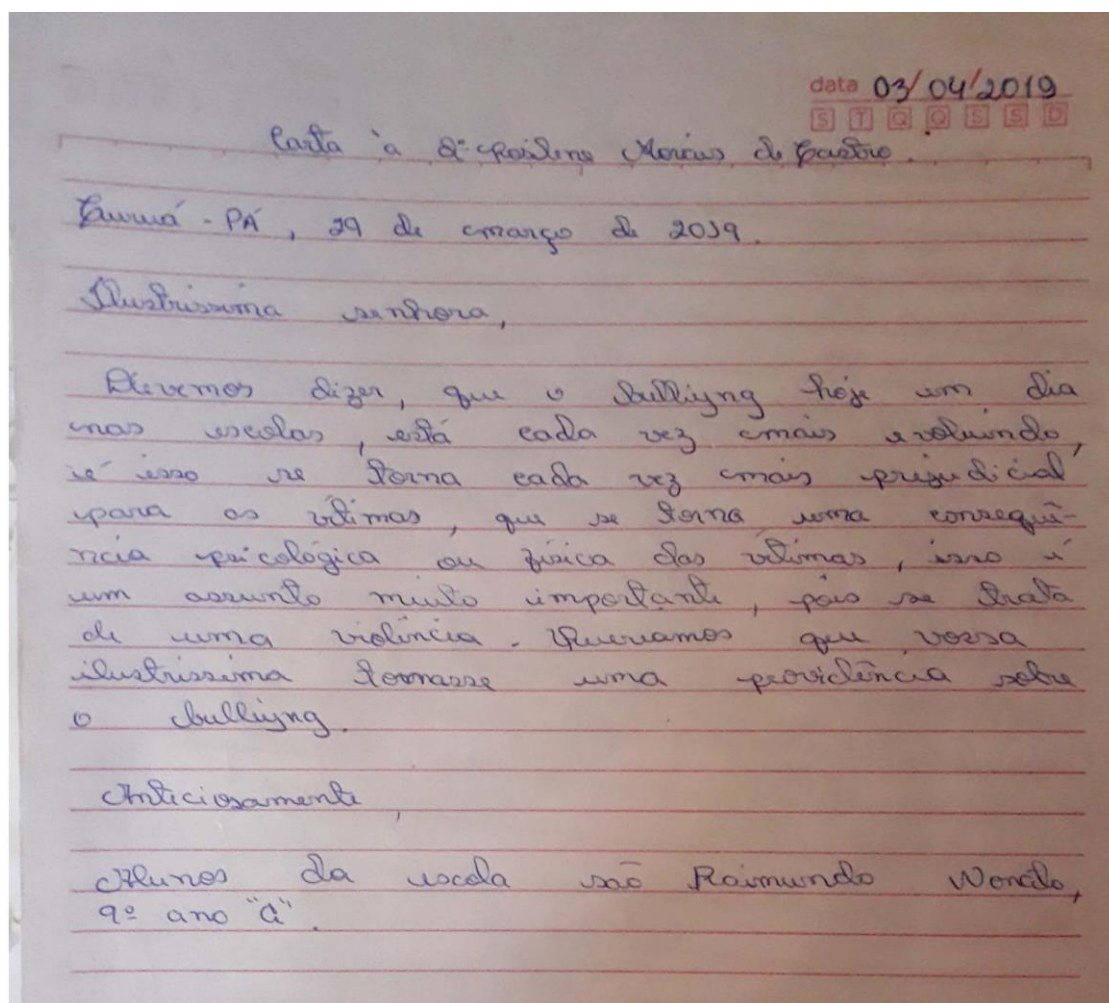 data 03/04/2019
S T Q Q S S D
Carta à Sª Morais de Castro.
Curuá - PÁ, 29 de março de 2019.
Ilustrissima senhora,
Devemos dizer, que o bulliyng hoje em dia
nas escolas, está cada vez mais evoluindo,
é isso se torna cada vez mais prejudicial
para as vítimas, que se torna uma consequê-
ncia psicológica ou física das vítimas, isso é
um assunto muito importante, pois se trata
de uma violência. Queriamos que vossa
ilustrissima tomasse uma providência sobre
o bulliyng.
Anticiosamente,
Alunos da escola são Raimundo Nonato,
9º ano "a".